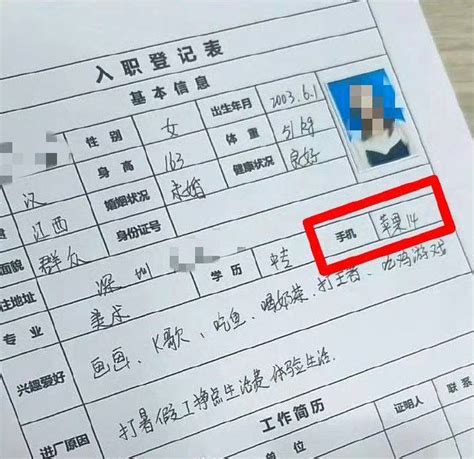 入职登记表
基本信息
性别 女 出生年月 2003.6.1
汉 身高 163 体重 51kg
江西 婚姻状况 未婚 健康状况 良好
面貌 群众 身份证号
住地址 深圳 学历 中专 手机 苹果14
专业 美术
兴趣爱好 画画、K歌、吃鱼、喝奶茶、打王者、吃鸡游戏
进厂原因 打暑假工挣点生活费体验生活.
工作简历
单位 证明人 联系